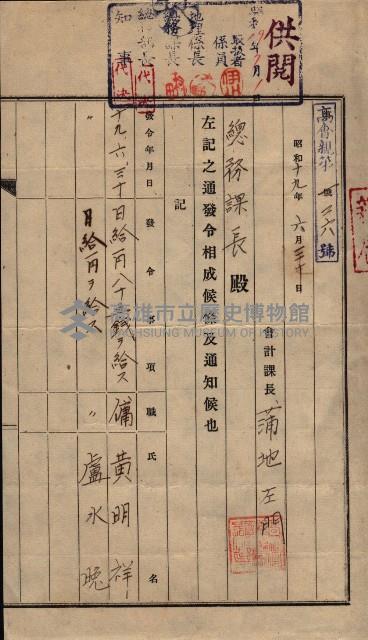 供閱
昭和19年7月1日
取扱者
係員
地理係長
總務課長
總務部長
知事
代決
高會親第一號ノ三六號
昭和十九年六月三十日
會計課長 蒲地左門
總務課長 殿
左記之通發令相成候條及通知候也
記
發令年月日 發令事項 職 氏名
十九、六、三十 日給一円八十錢ヲ給ス 傭 黃明祥
〃 日給一円ヲ給ス 〃 盧水晚
高雄市立歷史博物館
KAOHSIUNG MUSEUM OF HISTORY